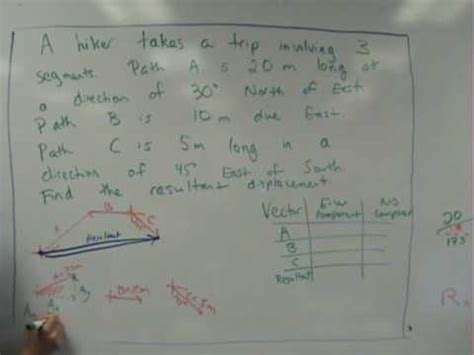 A hiker takes a trip involving 3
segments. Path A is 20 m long at
a direction of 30° North of East
Path B is 10 m due East
Path C is 5m long in a
direction of 45° East of South.
Find the resultant displacement.
Vector
E-W component
N-S component
A
B
C
Resultant
A
B
C
Resultant
Ay
Ax
20
17.3
R